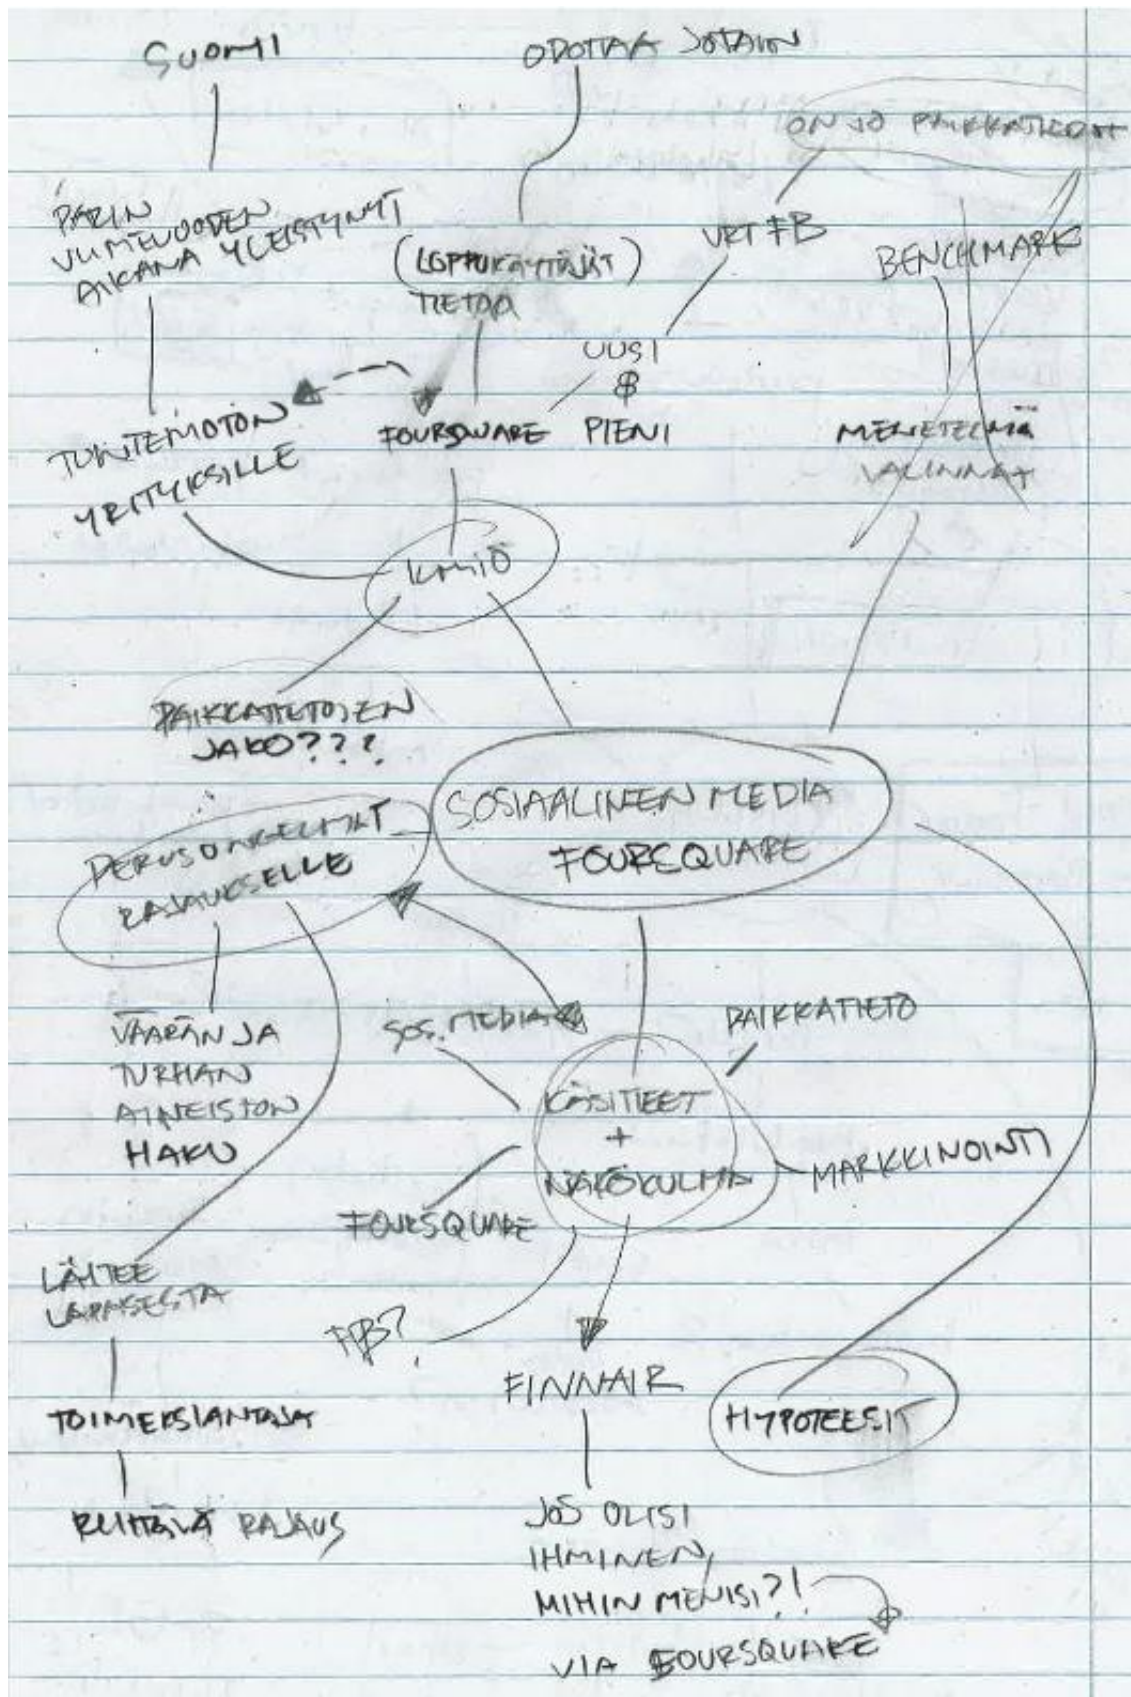 SUOMI
ODOTTAA JOTAIN
ON JO PAIKKATIEDOT
PARIN
VIIMEVUODEN
AIKANA YLEISTYNYT
(LOPPUKÄYTTÄJÄT)
TIETÄÄ
VRT FB
BENCHMARK
UUSI
&
PIENI
TUNTEMATON
YRITYKSILLE
FOURSQUARE
MENETELMÄ
VALINNAT
ILMIÖ
PAIKKATIETOJEN
JAKO???
SOSIAALINEN MEDIA
FOURSQUARE
PERUSONGELMAT
RAJAUKSELLE
VÄÄRÄN JA
TURHAN
AINEISTON
HAKU
SOS. MEDIA
PAIKKATIETO
KÄSITTEET
+
NÄKÖKULMA
MARKKINOINTI
FOURSQUARE
LÄHTEE
LAPASESTA
FB?
FINNAIR
HYPOTEESIT
TOIMEKSIANTAJA
RIITTÄVÄ RAJAUS
JOS OLISI
IHMINEN,
MIHIN MENISI?!
VIA FOURSQUARE